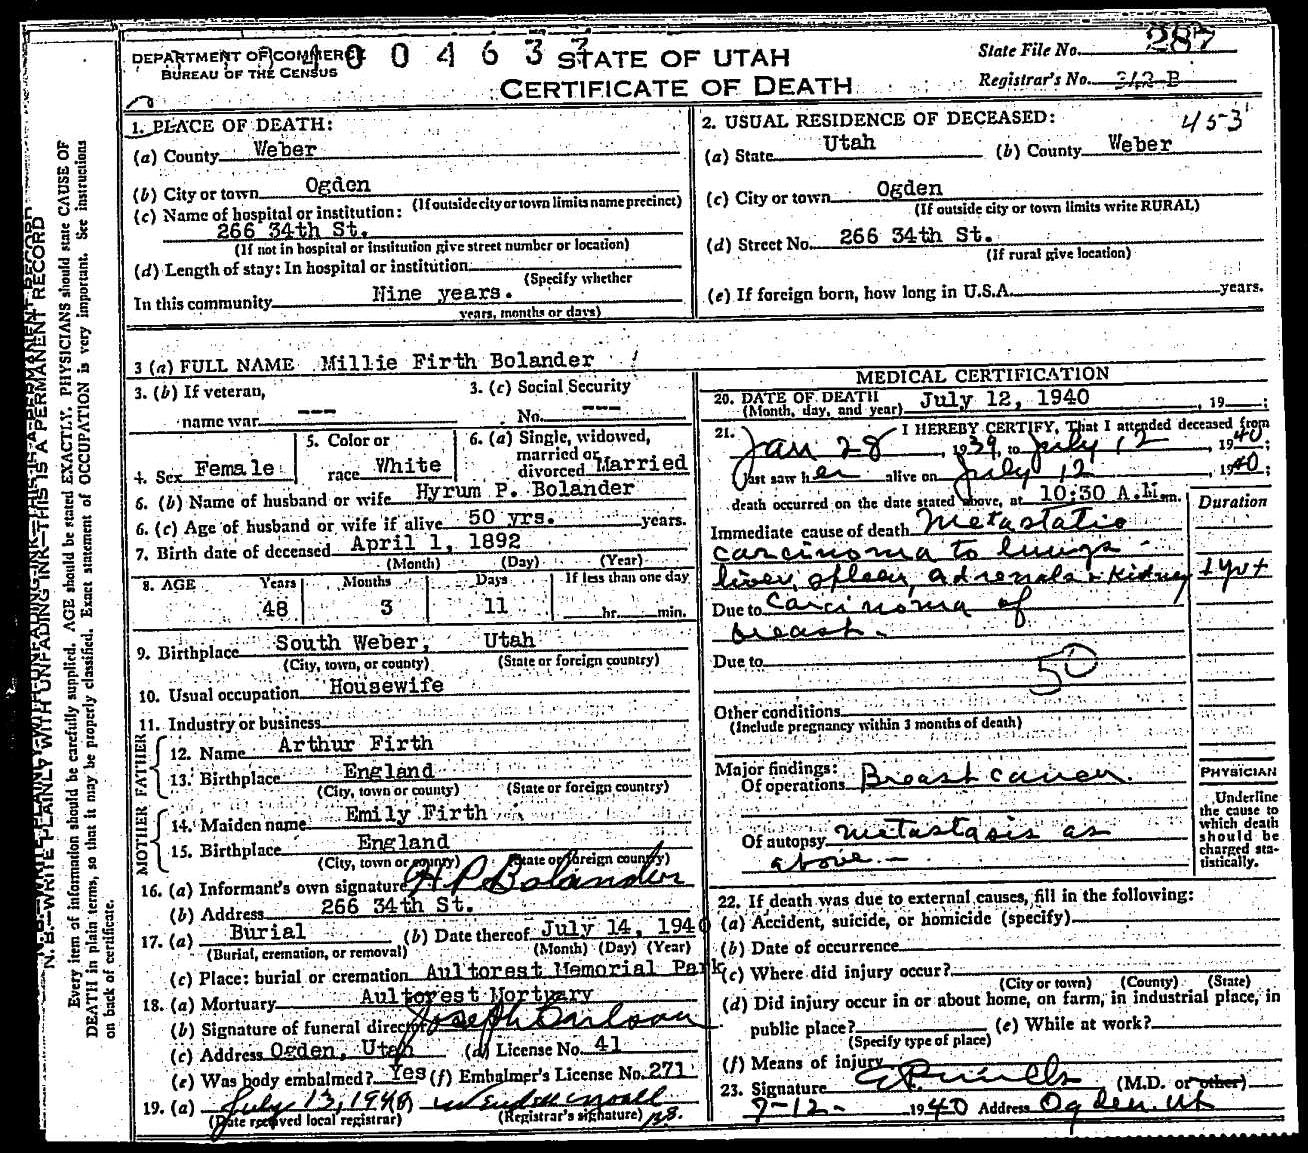 DEPARTMENT OF COMMERCE
BUREAU OF THE CENSUS
004637
STATE OF UTAH
CERTIFICATE OF DEATH
State File No. 287
Registrar's No. 342-B
1. PLACE OF DEATH:
(a) County Weber
(b) City or town Ogden
(If outside city or town limits name precinct)
(c) Name of hospital or institution:
266 34th St.
(If not in hospital or institution give street number or location)
(d) Length of stay: In hospital or institution
(Specify whether
In this community Nine years.
years, months or days)
2. USUAL RESIDENCE OF DECEASED: 453
(a) State Utah (b) County Weber
(c) City or town Ogden
(If outside city or town limits write RURAL)
(d) Street No. 266 34th St.
(If rural give location)
(e) If foreign born, how long in U.S.A. years.
3 (a) FULL NAME Millie Firth Bolander
3. (b) If veteran,
name war ---
3. (c) Social Security
No. ---
4. Sex Female
5. Color or
race White
6. (a) Single, widowed,
married or
divorced Married
6. (b) Name of husband or wife Hyrum P. Bolander
6. (c) Age of husband or wife if alive 50 yrs. years.
7. Birth date of deceased April 1, 1892
(Month) (Day) (Year)
8. AGE Years Months Days If less than one day
48 3 11 hr. min.
9. Birthplace South Weber, Utah
(City, town, or county) (State or foreign country)
10. Usual occupation Housewife
11. Industry or business
FATHER
12. Name Arthur Firth
13. Birthplace England
(City, town or county) (State or foreign country)
MOTHER
14. Maiden name Emily Firth
15. Birthplace England
(City, town or county) (State or foreign country)
16. (a) Informant's own signature H P Bolander
(b) Address 266 34th St.
17. (a) Burial (b) Date thereof July 14, 1940
(Burial, cremation, or removal) (Month) (Day) (Year)
(c) Place: burial or cremation Aultorest Memorial Park
18. (a) Mortuary Aultorest Mortuary
(b) Signature of funeral director Joseph
(c) Address Ogden, Utah (d) License No. 41
(e) Was body embalmed? Yes (f) Embalmer's License No. 271
19. (a) July 13, 1940
(Date received local registrar) (Registrar's signature)
MEDICAL CERTIFICATION
20. DATE OF DEATH
(Month, day, and year) July 12, 1940, 19 ;
21. I HEREBY CERTIFY, That I attended deceased from
Jan 28, 1939, to July 12, 1940;
last saw her alive on July 12 1940;
death occurred on the date stated above, at 10:30 A.M. m.
Duration
Immediate cause of death Metastatic
carcinoma to lungs -
liver, spleen, adrenals & kidney 1 yr +
Due to Carcinoma of
breast.
Due to
50
Other conditions
(Include pregnancy within 3 months of death)
Major findings:
Of operations Breast cancer.
Of autopsy metastasis as
above -
PHYSICIAN
Underline
the cause to
which death
should be
charged sta-
tistically.
22. If death was due to external causes, fill in the following:
(a) Accident, suicide, or homicide (specify)
(b) Date of occurrence
(c) Where did injury occur?
(City or town) (County) (State)
(d) Did injury occur in or about home, on farm, in industrial place, in
public place? (e) While at work?
(Specify type of place)
(f) Means of injury
23. Signature (M.D. or other)
7-12- 1940 Address Ogden Ut
N. B.—WRITE PLAINLY WITH UNFADING INK—THIS IS A PERMANENT RECORD
Every item of information should be carefully supplied. AGE should be stated EXACTLY. PHYSICIANS should state CAUSE OF
DEATH in plain terms, so that it may be properly classified. Exact statement of OCCUPATION is very important. See instructions
on back of certificate.